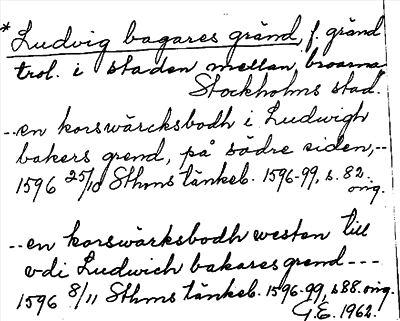 * Ludvig bagares gränd, f. gränd
trol. i staden mellan broarna,
Stockholms stad.
--en korswärcksbodh i Ludwigh
bakers grend, på södre siden,--
1596 25/10 Sthms tänkeb. 1596-99, s. 82.
orig.
--en korswärksbodh westen till
vdi Ludwich bakares grend---
1596 8/11 Sthms tänkeb. 1596-99, s 88. orig.
G.E. 1962.